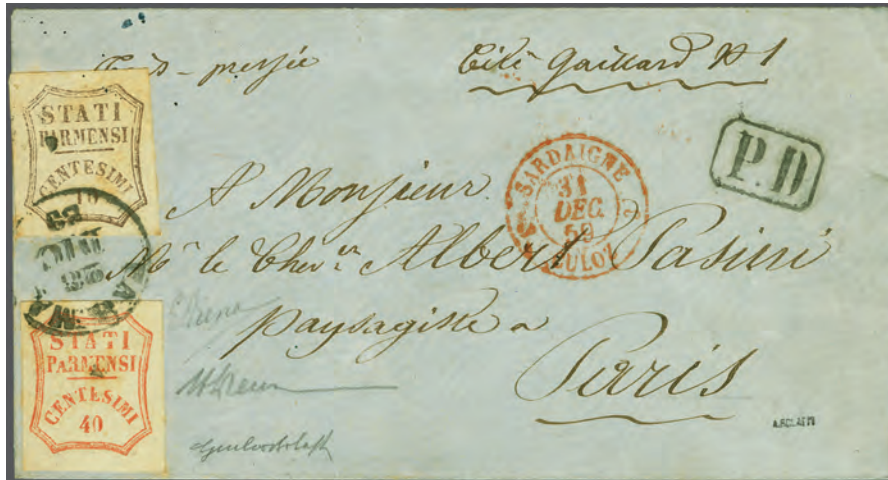 Très-pressée
Cité Gaillard No 1
STATI
PARMENSI
CENTESIMI
10
P.D
SARDAIGNE
31
DEC.
59
CULOZ
2
A Monsieur
Mr le Chever Albert Pasini
paysagiste a
Paris
PARMA
DIC
59
STATI
PARMENSI
CENTESIMI
40
A.BOLAFFI